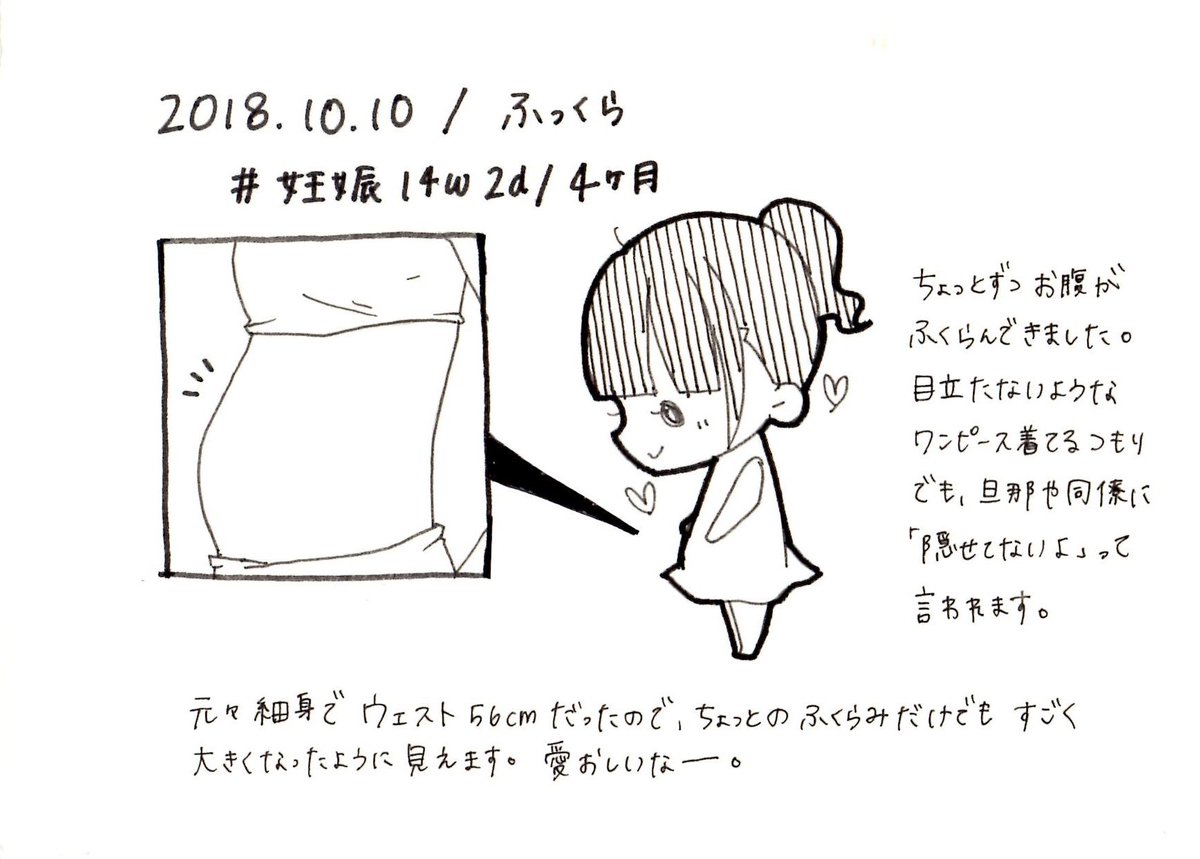 2018.10.10 / ふっくら
#妊娠14w2d/4ヶ月
ちょっとずつお腹が
ふくらんできました。
目立たないような
ワンピース着てるつもり
でも、旦那や同僚に
「隠せてないよ」って
言われます。
元々細身でウェスト56cmだったので、ちょっとのふくらみだけでもすごく
大きくなったように見えます。愛おしいなー。